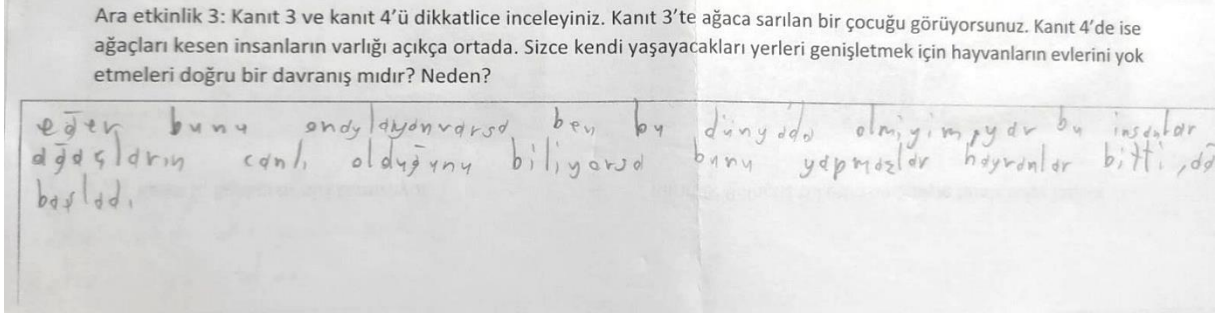 Ara etkinlik 3: Kanıt 3 ve kanıt 4'ü dikkatlice inceleyiniz. Kanıt 3'te ağaca sarılan bir çocuğu görüyorsunuz. Kanıt 4'de ise
ağaçları kesen insanların varlığı açıkça ortada. Sizce kendi yaşayacakları yerleri genişletmek için hayvanların evlerini yok
etmeleri doğru bir davranış mıdır? Neden?
eğer bunu onaylayanvarsa ben bu dünyada bu insanlar
ağaçların canlı olduğunu biliyorsa bunu yapmazlar hayvanlar bitti
başladı